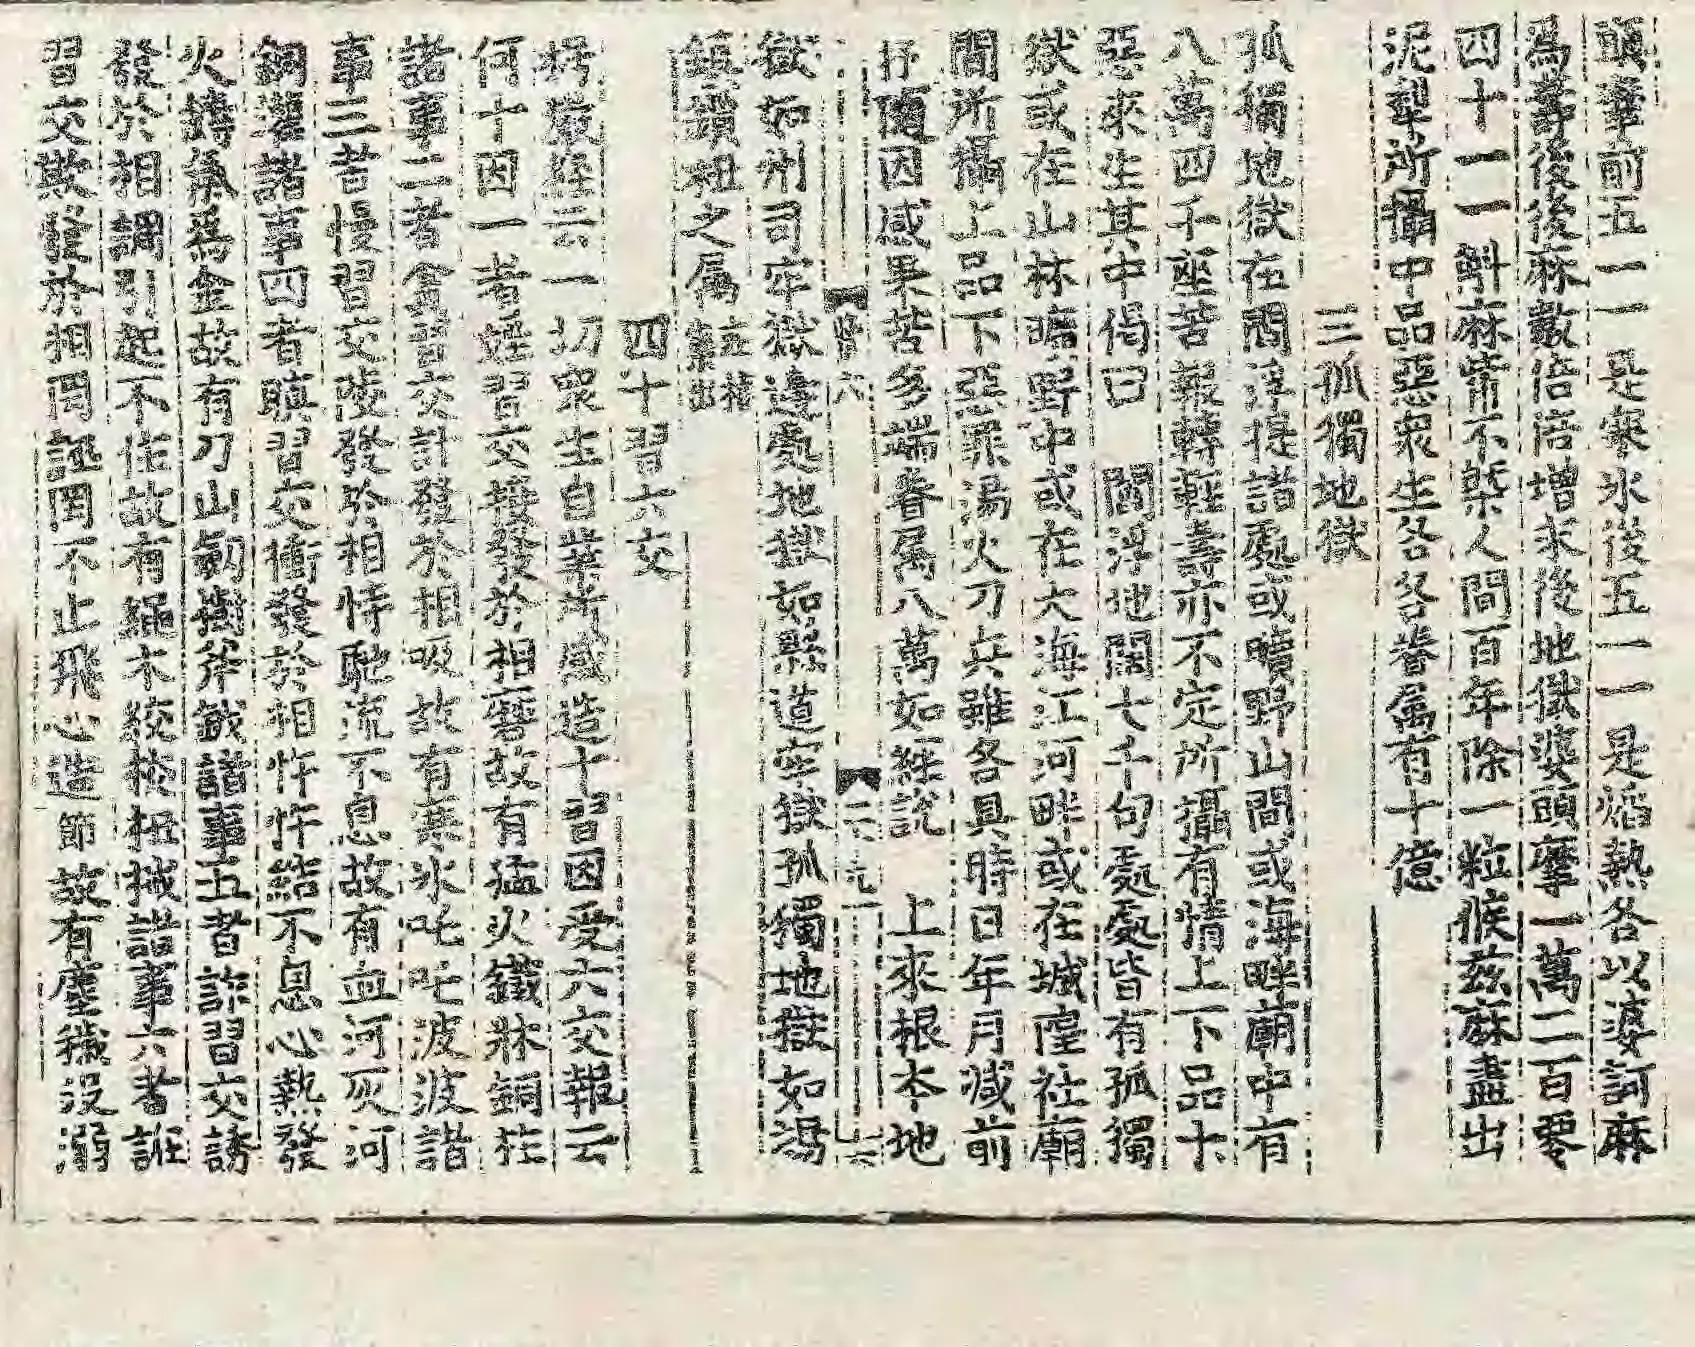 頭華前五一一是寒氷後五一一是焰熱各以婆訶麻
爲壽後後麻數倍倍增求後地獄婆頭摩一萬二百零
四十二一斛麻常不槩人間百年除一粒候玆麻盡出
泥犂所攝中品惡衆生各各眷屬有十億
三孤獨地獄
孤獨地獄在閻浮提諸處或曠野山間或海畔廟中有
八萬四千座苦報轉輕壽亦不定所攝有情上下品十
惡來生其中偈曰 閻浮地闊七千旬處處皆有孤獨
獄或在山林曠野中或在大海江河畔或在城隍社廟
間所攝上品下惡罪湯火刀兵雖各具時日年月減前
抒隨因感果苦多端眷屬八萬如經說 上來根本地
獄如州司牢獄邊處地獄如縣道牢獄孤獨地獄如湯
鎮鑕杻之屬
四十習六交
楞嚴經云一切衆生自業所感造十習因受六交報云
何十因一者婬習交接發於相磨故有猛火鐵牀銅柱
諸事二者貪習交計發於相吸故有寒氷吒吒波波諸
事三者慢習交陵發於相恃馳流不息故有血河灰河
銅灌諸事四者瞋習交衝發於相忤忤結不息心熱發
火鑄氣爲金故有刀山劒樹斧鉞諸事五者詐習交誘
發於相調引起不住故有繩木絞校杻械諸事六者誑
習交欺發於相罔誣罔不止飛心造節故有塵穢没溺